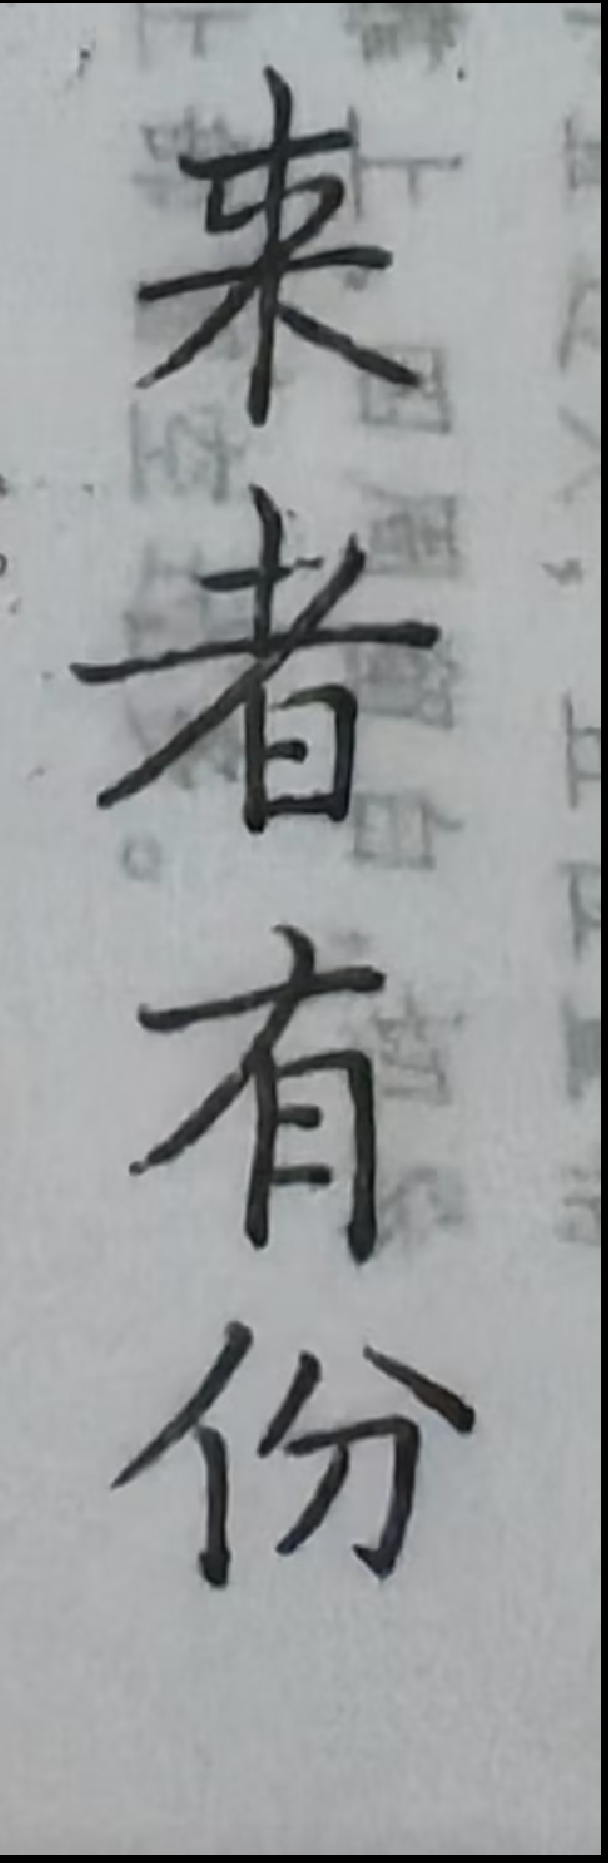 来者有份